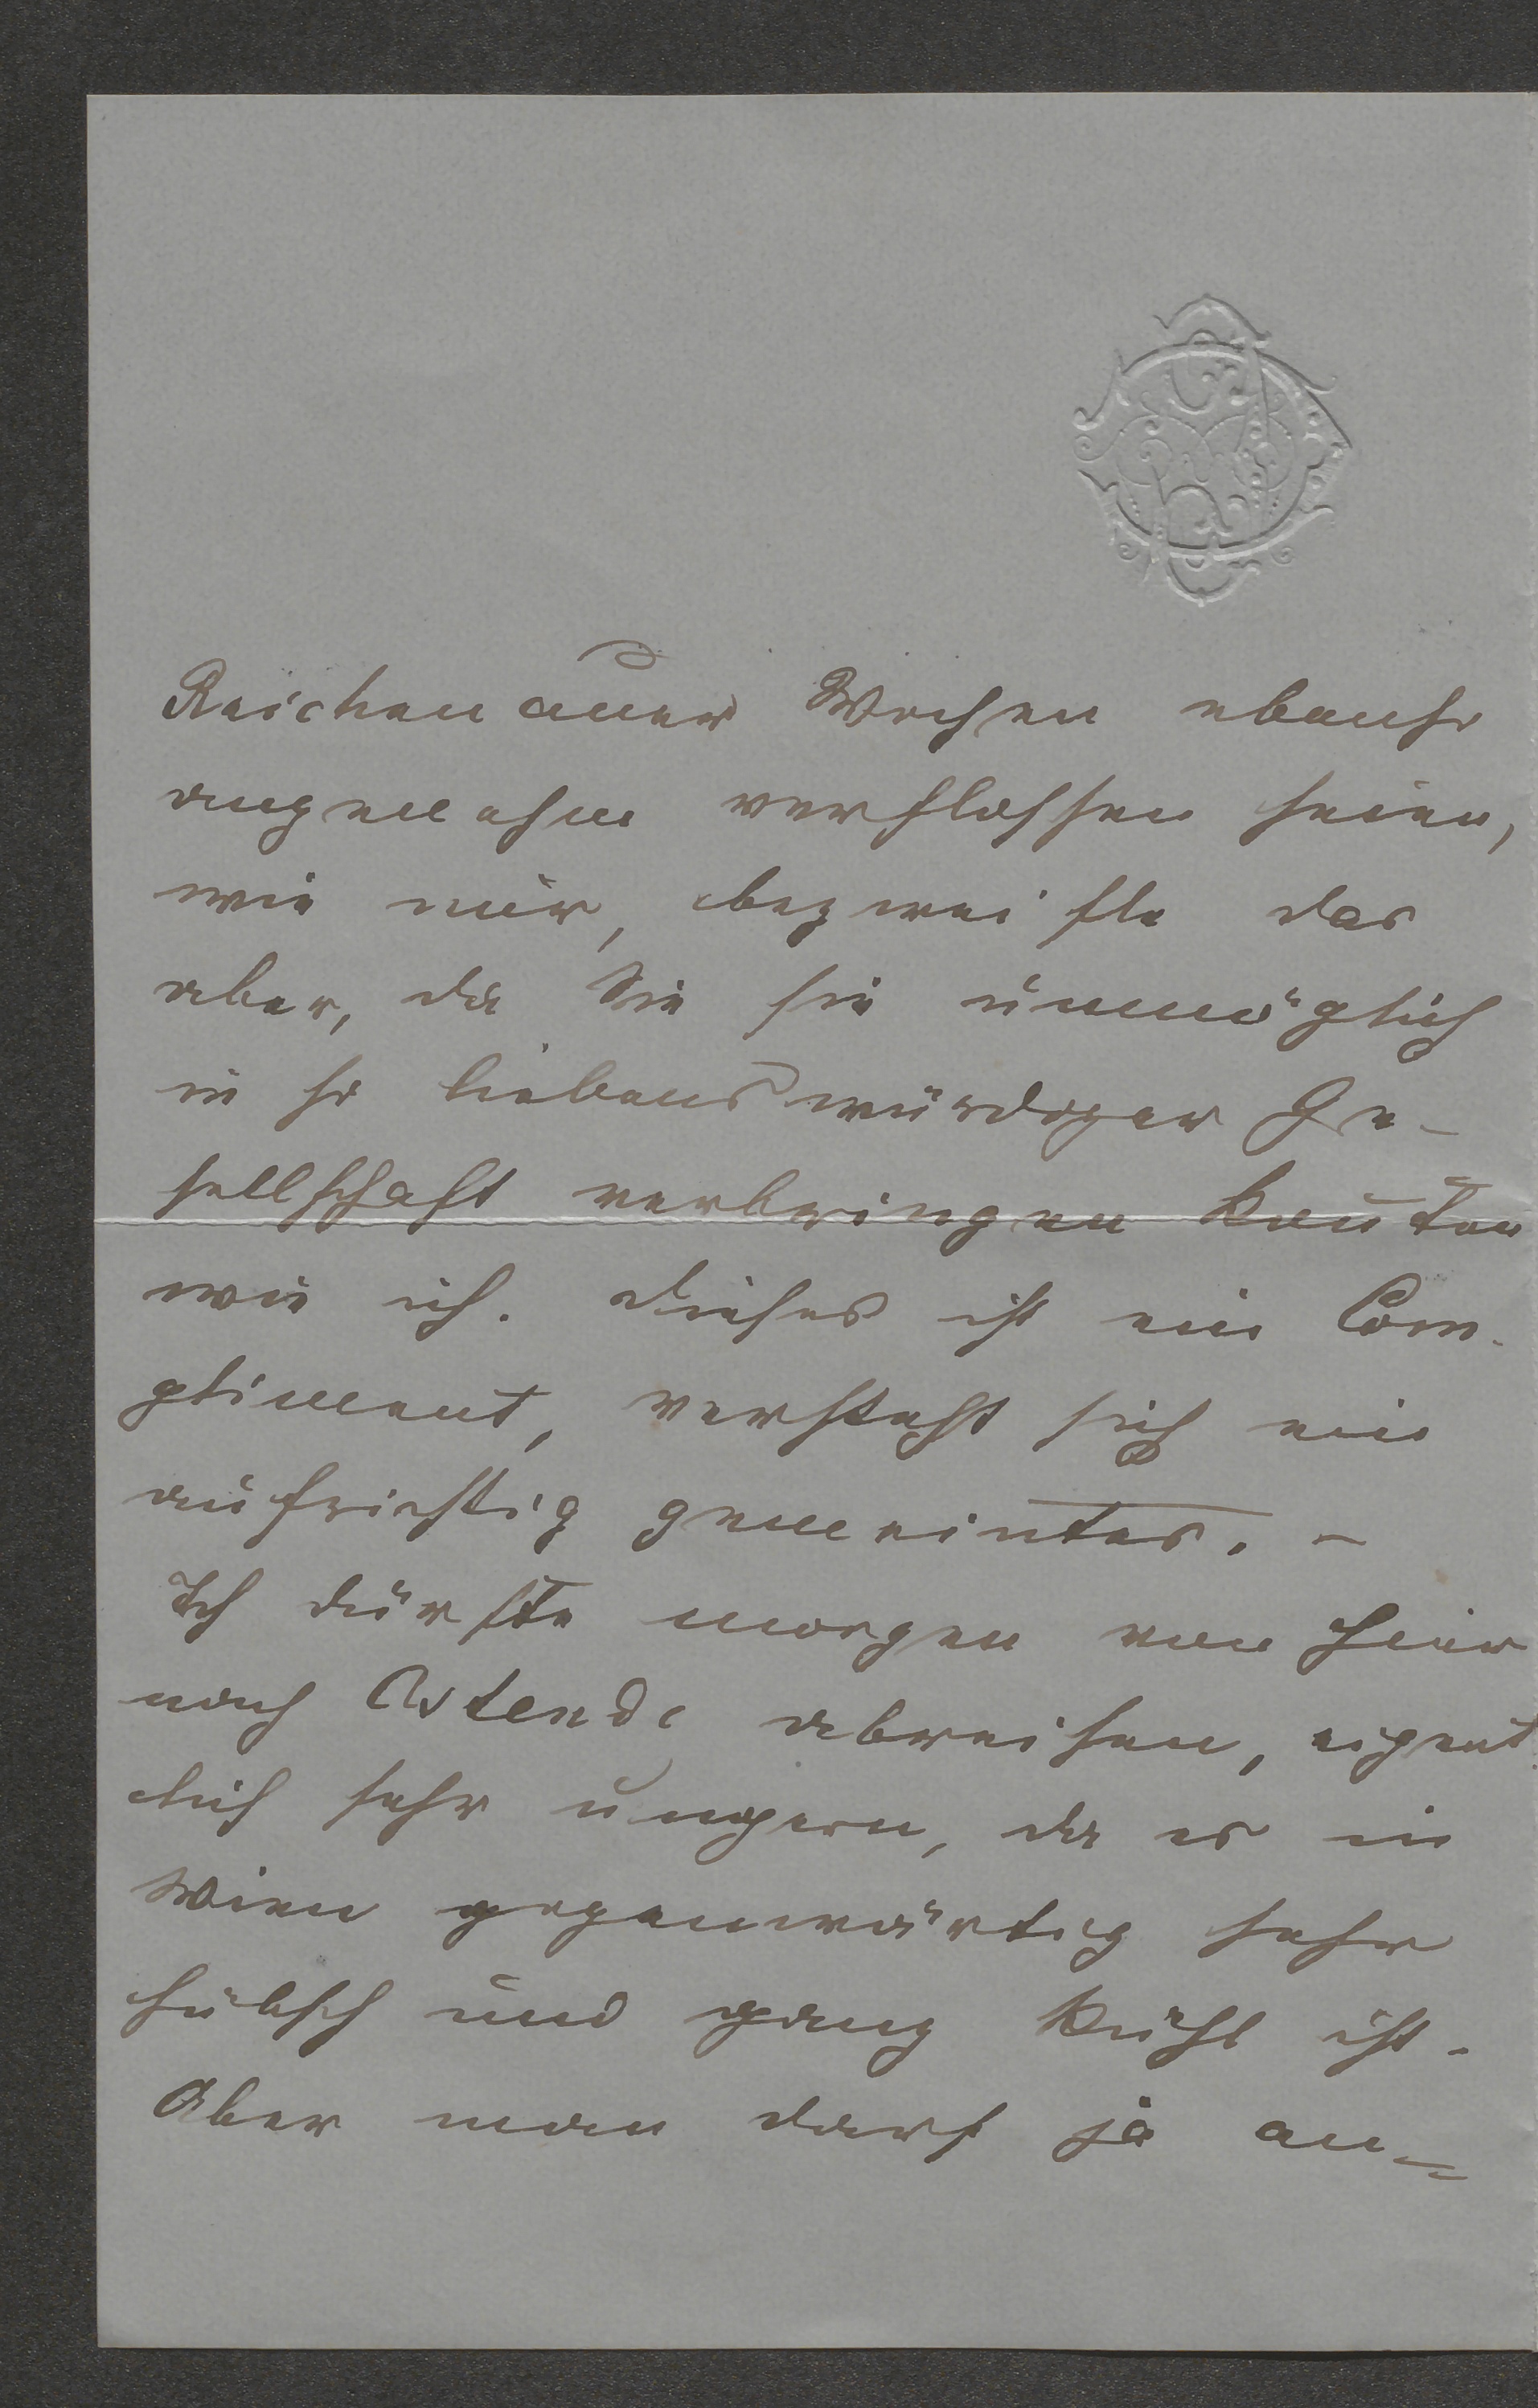 Reichenauer Wochen ebenso
angenehm verflossen seien,
wie mir, bezweifle das
aber, da Sie sie unmöglich
in so liebenswürdiger Ge-
sellschaft verbringen konnten
wie ich. Dieses ist ein Com-
pliment, versteht sich ein
aufrichtig gemeintes. –
Ich dürfte morgen von hier
nach Ostende abreisen, eigent
lich sehr ungern, da es in
Wien gegenwärtig sehr
hübsch und ganz kühl ist.
Aber man darf ja an=